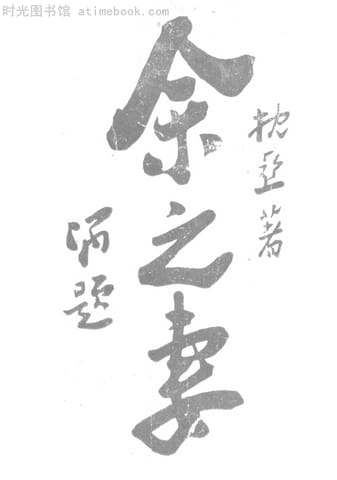 时光图书馆 atimebook.com
枕亞著
余之妻
題